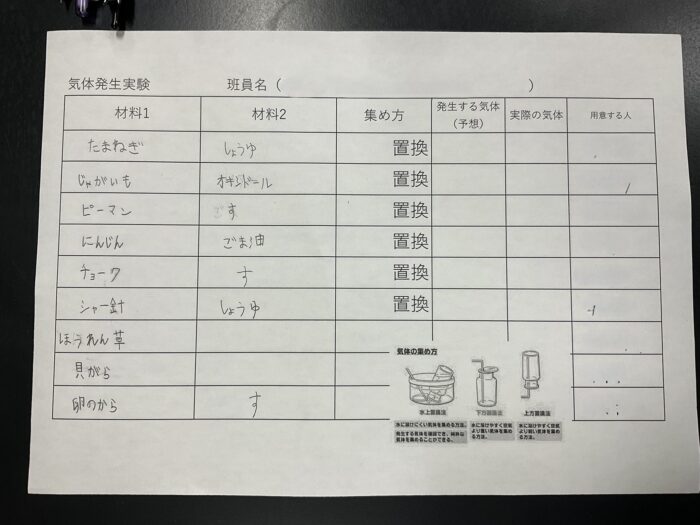 気体発生実験 班員名（ ）
材料1 材料2 集め方 発生する気体（予想） 実際の気体 用意する人
たまねぎ しょうゆ 置換
じゃがいも オキシドール 置換
ピーマン す 置換
にんじん ごま油 置換
チョーク す 置換
シャー針 しょうゆ 置換
ほうれん草
貝がら
卵のから す
気体の集め方
水上置換法 下方置換法 上方置換法
水に溶けにくい気体を集める方法。
発生する気体を確認でき、純粋な気体を集めることができる。
水に溶けやすく空気より重い気体を集める方法。
水に溶けやすく空気より軽い気体を集める方法。